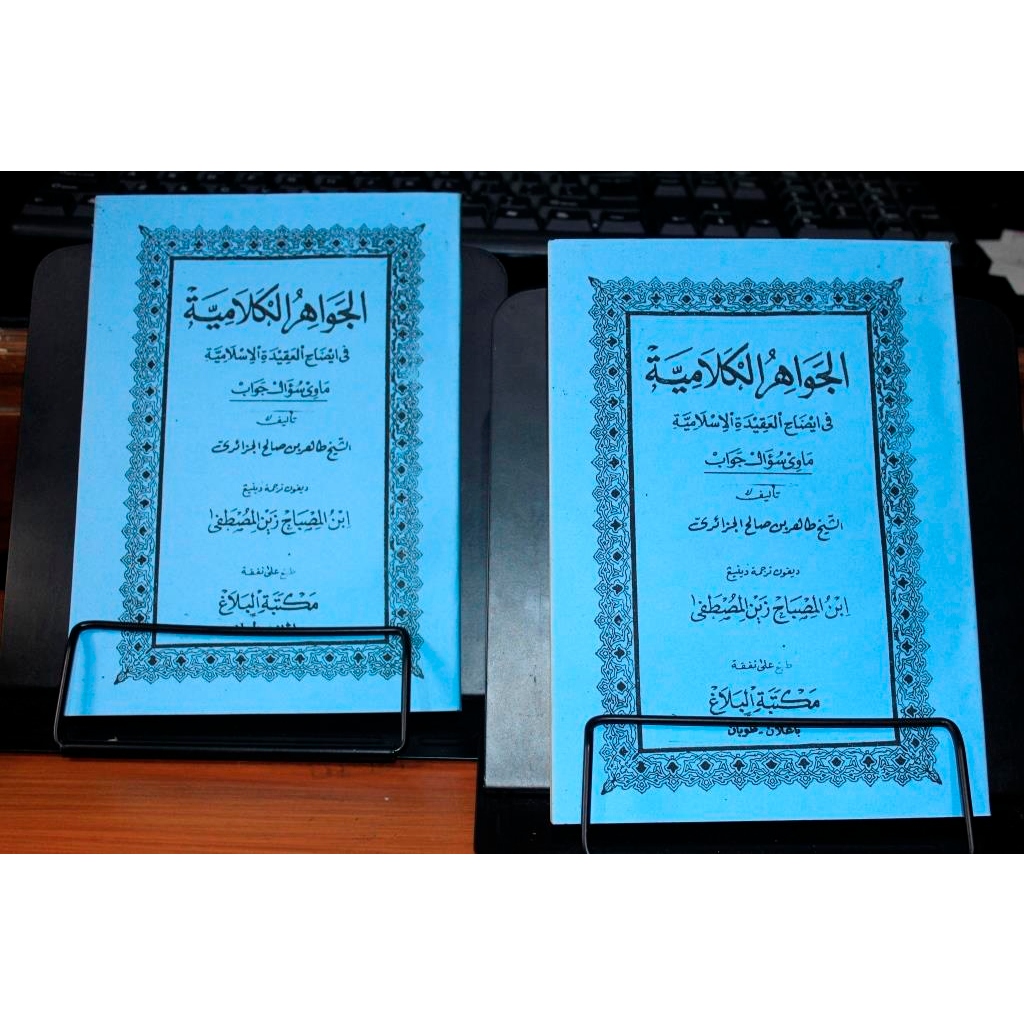 الجَوَاهِرُ الكَلَامِيَّةْ
فى ايضَاح العَقِيْدَةِ الاِسْلَامِيَّة
مَاوِىْ سُؤَال جَوَابْ
تأليف
الشّيخ طاهر بن صالح الجزائرى
ديفون ترجمة دينيڠ
اِبْنُ المِصْبَاحْ زَيْنِ المُصْطَفىٰ
طبع على نفقة
مَكْتَبَة اْلبَلَاغْ
الجَوَاهِرُ الكَلَامِيَّةْ
فى ايضَاح العَقِيْدَةِ الاِسْلَامِيَّة
مَاوِىْ سُؤَال جَوَابْ
تأليف
الشّيخ طاهر بن صالح الجزائرى
ديفون ترجمة دينيڠ
اِبْنُ المِصْبَاحْ زَيْنِ المُصْطَفىٰ
طبع على نفقة
مَكْتَبَة اْلبَلَاغْ
باڠيلان - توبان